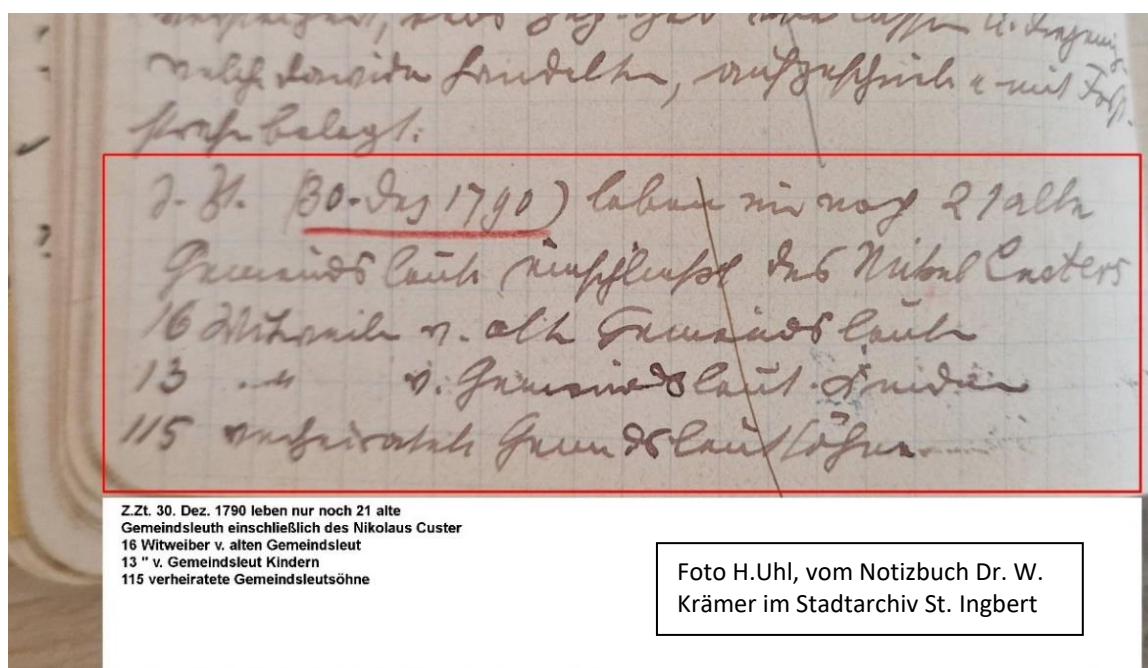 welche dawider handelten, aufgeschrieb u. mit Forst-
strafe belegt.
Z. Zt. (30. Dez 1790) leben nur noch 21 alte
Gemeinds leute einschließl des Nickel Custers
16 Witweile v. alte Gemeinds leute
13 " v. Gemeindsleut. Kinder
115 verheiratete Gemndsleutsöhne
Z.Zt. 30. Dez. 1790 leben nur noch 21 alte
Gemeindsleuth einschließlich des Nikolaus Custer
16 Witweiber v. alten Gemeindsleut
13 " v. Gemeindsleut Kindern
115 verheiratete Gemeindsleutsöhne
Foto H.Uhl, vom Notizbuch Dr. W.
Krämer im Stadtarchiv St. Ingbert